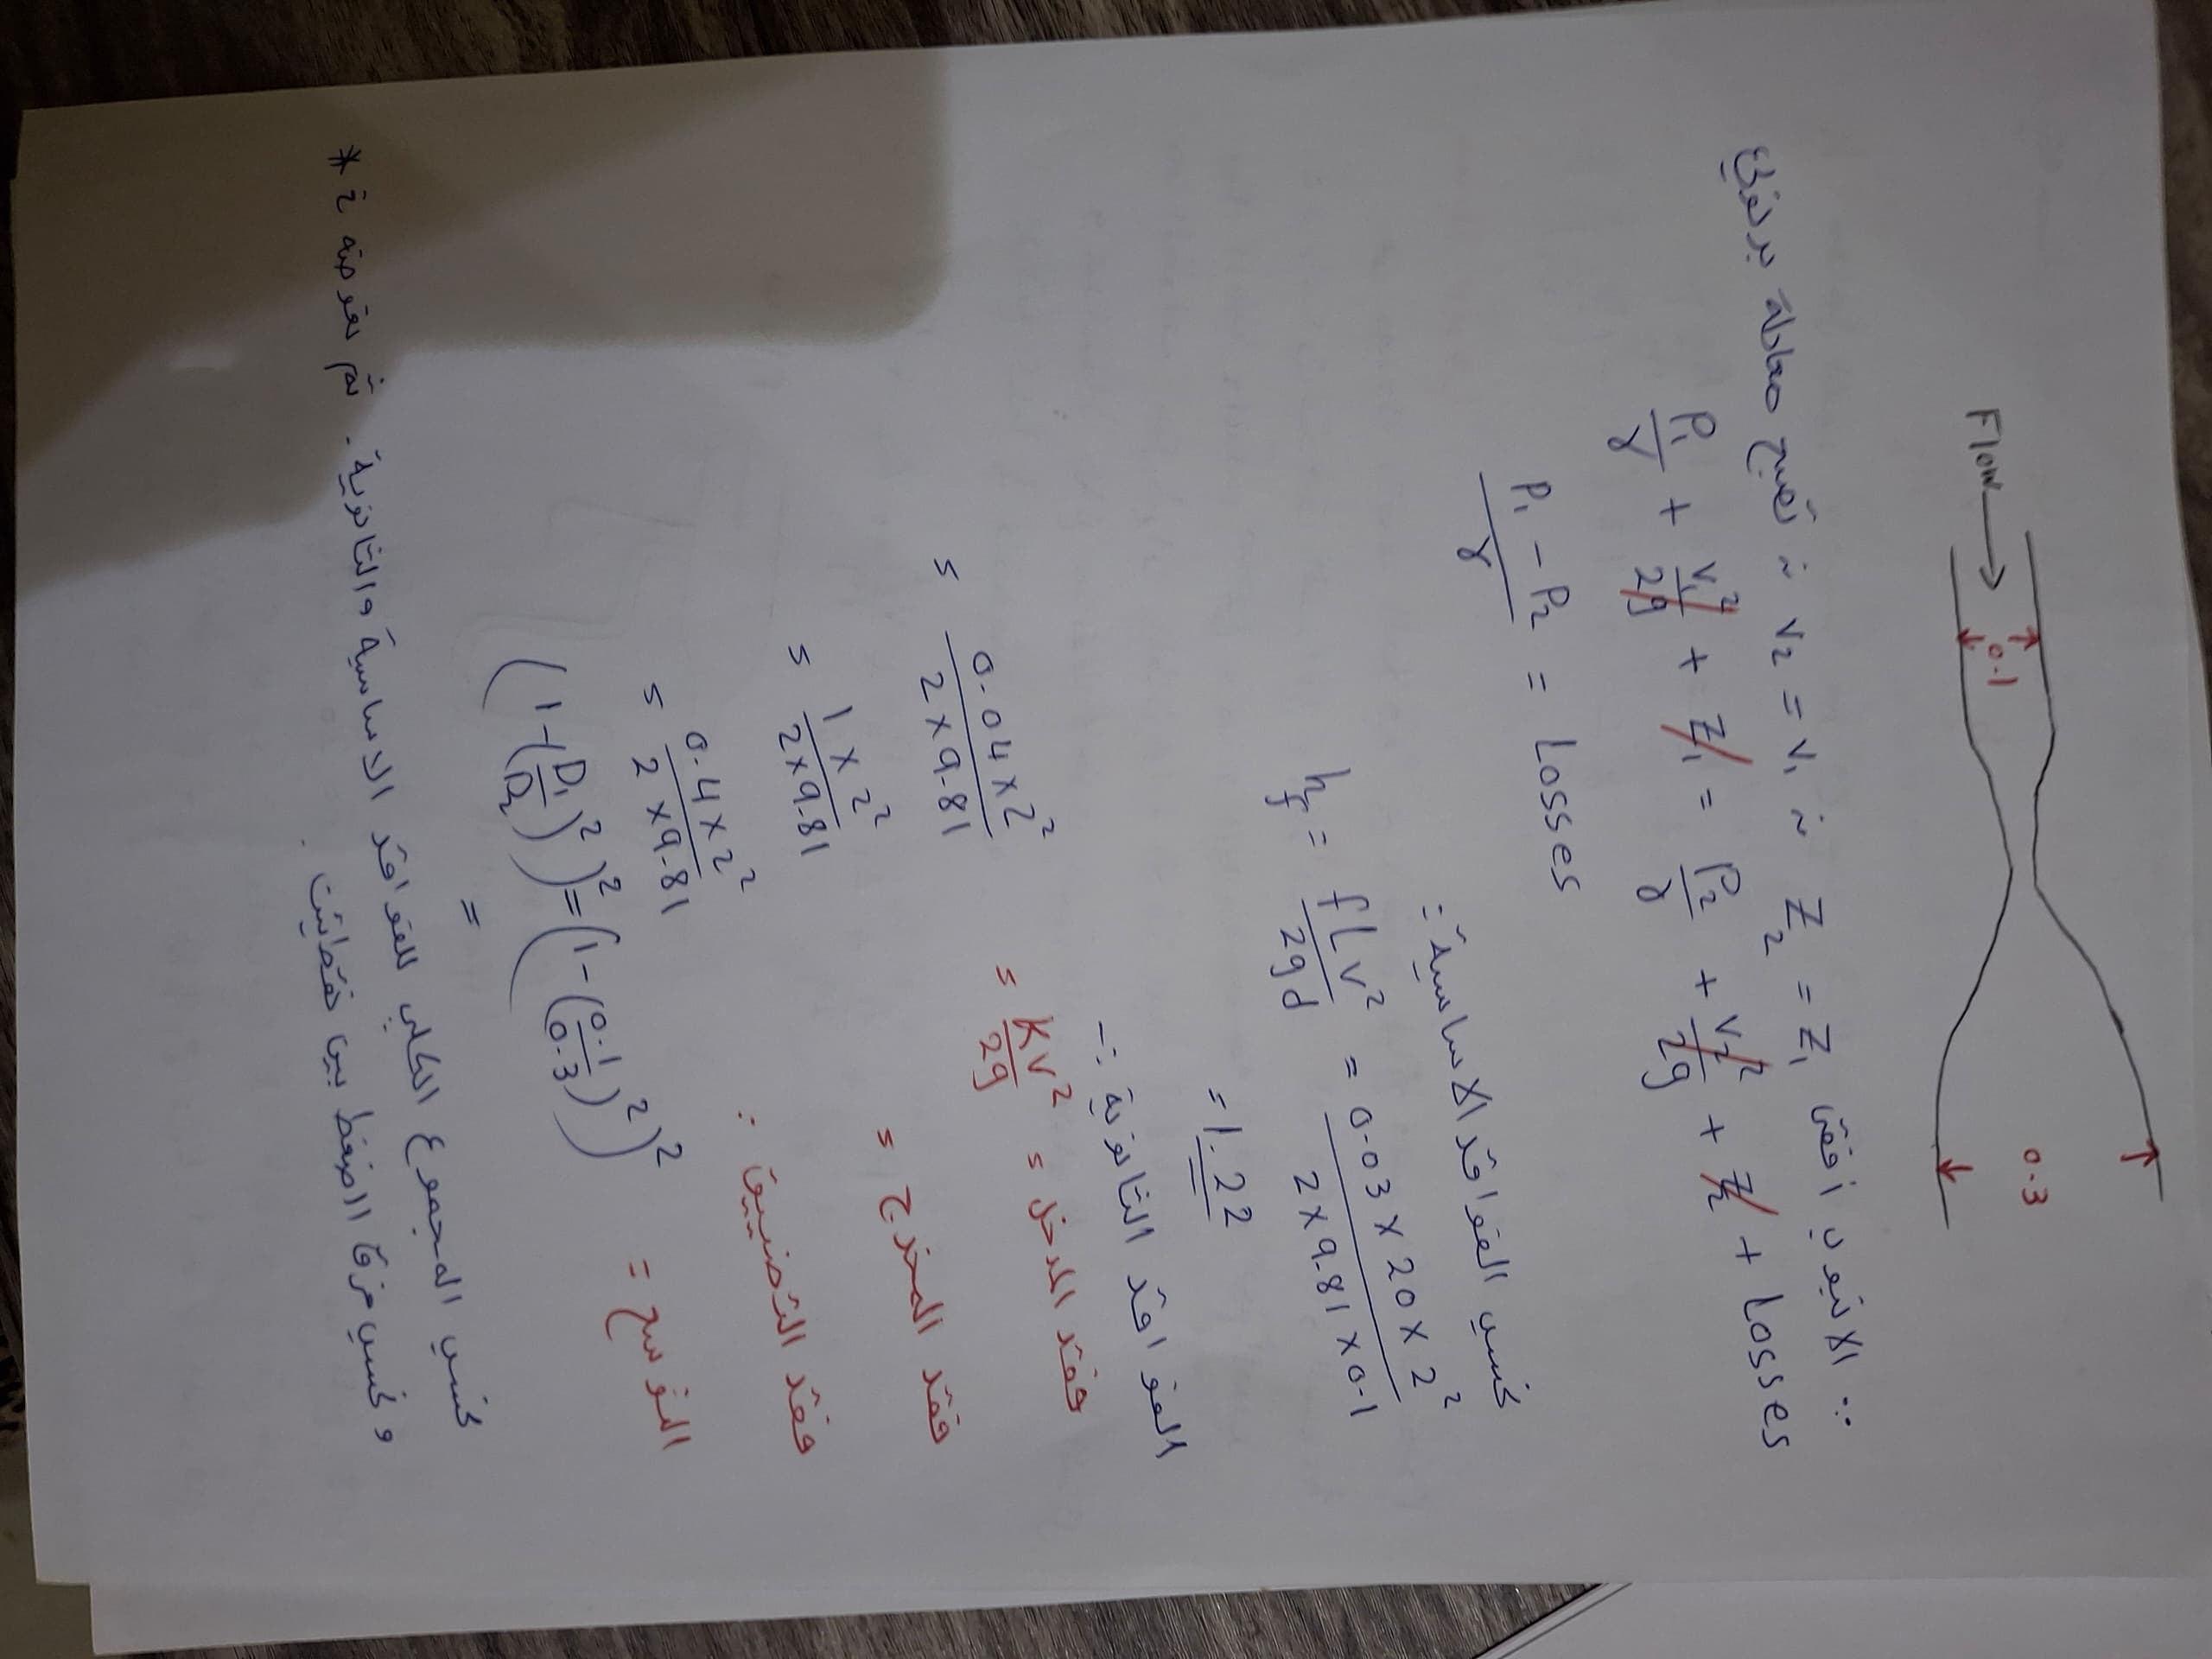 Flow → 0.1 0.3
∵ الانبوب أفقى Z₁ = Z₂ ∴ V₁ = V₂ ∴ تصبح معادلة برنولي
P₁/γ + V₁²/2g + Z₁ = P₂/γ + V₂²/2g + Z₂ + Losses
P₁ - P₂/γ = Losses
نحسب الفواقد الاساسية :
hf = fLv²/2gd = 0.03 × 20 × 2²/2 × 9.81 × 0.1
= 1.22
الفواقد الثانوية :-
فقد المدخل = Kv²/2g = 0.04 × 2²/2 × 9.81
فقد المخرج = 1 × 2²/2 × 9.81
فقد التضييق : = 0.4 × 2²/2 × 9.81
التوسع = (1 - (D₁/D₂)²)² = (1 - (0.1/0.3)²)²
=
نحسب المجموع الكلي للفواقد الاساسية والثانوية . ثم نعوضه في *
و نحسب فرق الضغط بين نقطتين .